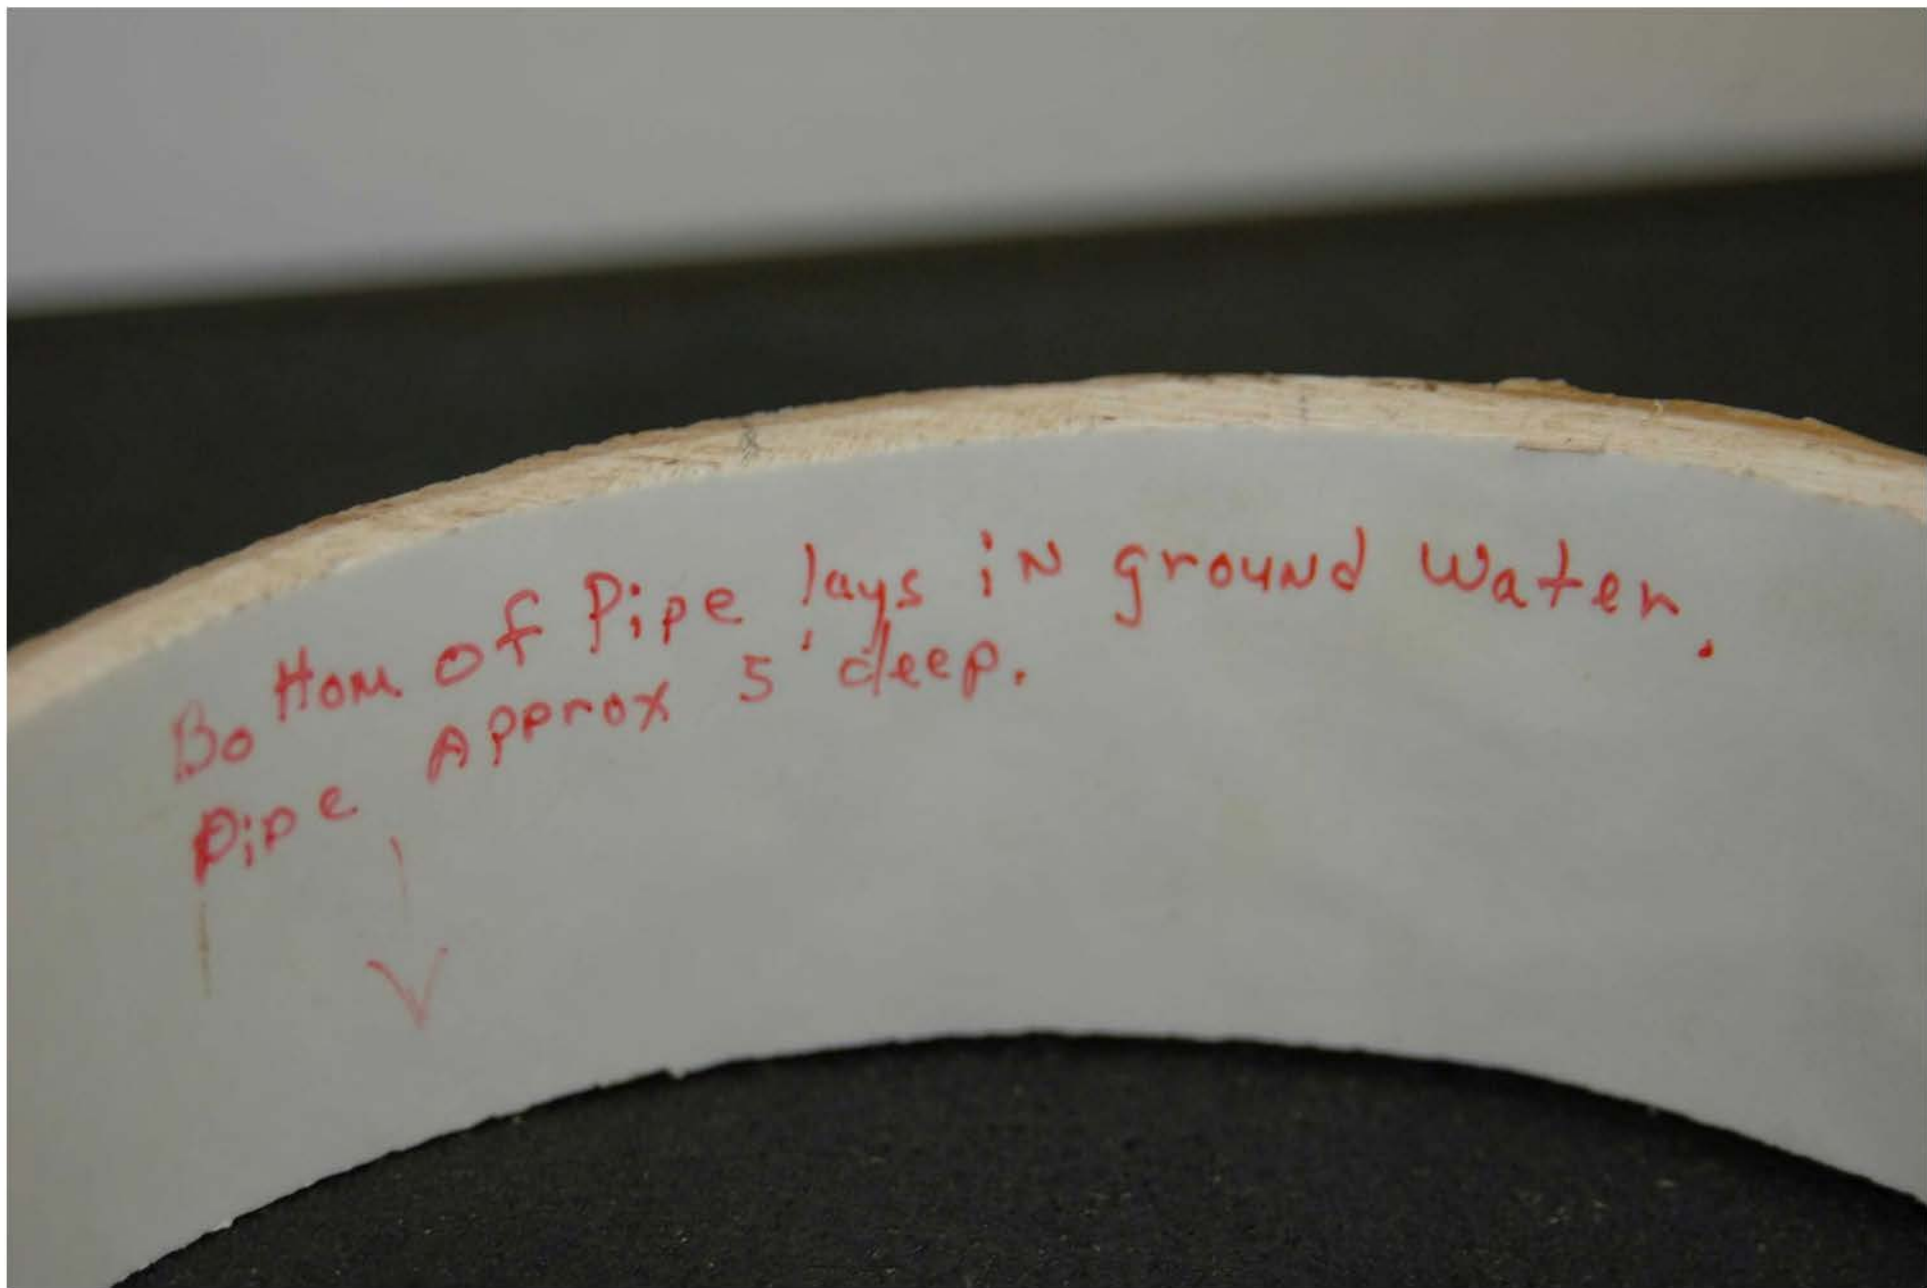 Bottom of Pipe lays in ground water.
Pipe Approx 5' deep.